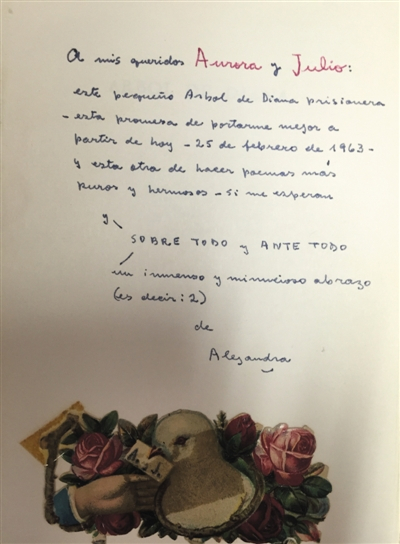 A mis queridos Aurora y Julio:
este pequeño Arbol de Diana prisionera
- esta promesa de portarme mejor a
partir de hoy - 25 de febrero de 1963 -
y esta otra de hacer poemas más
puros y hermosos - si me esperan
y
SOBRE TODO y ANTE TODO
un inmenso y minucioso abrazo
(es decir: 2)
de
Alejandra